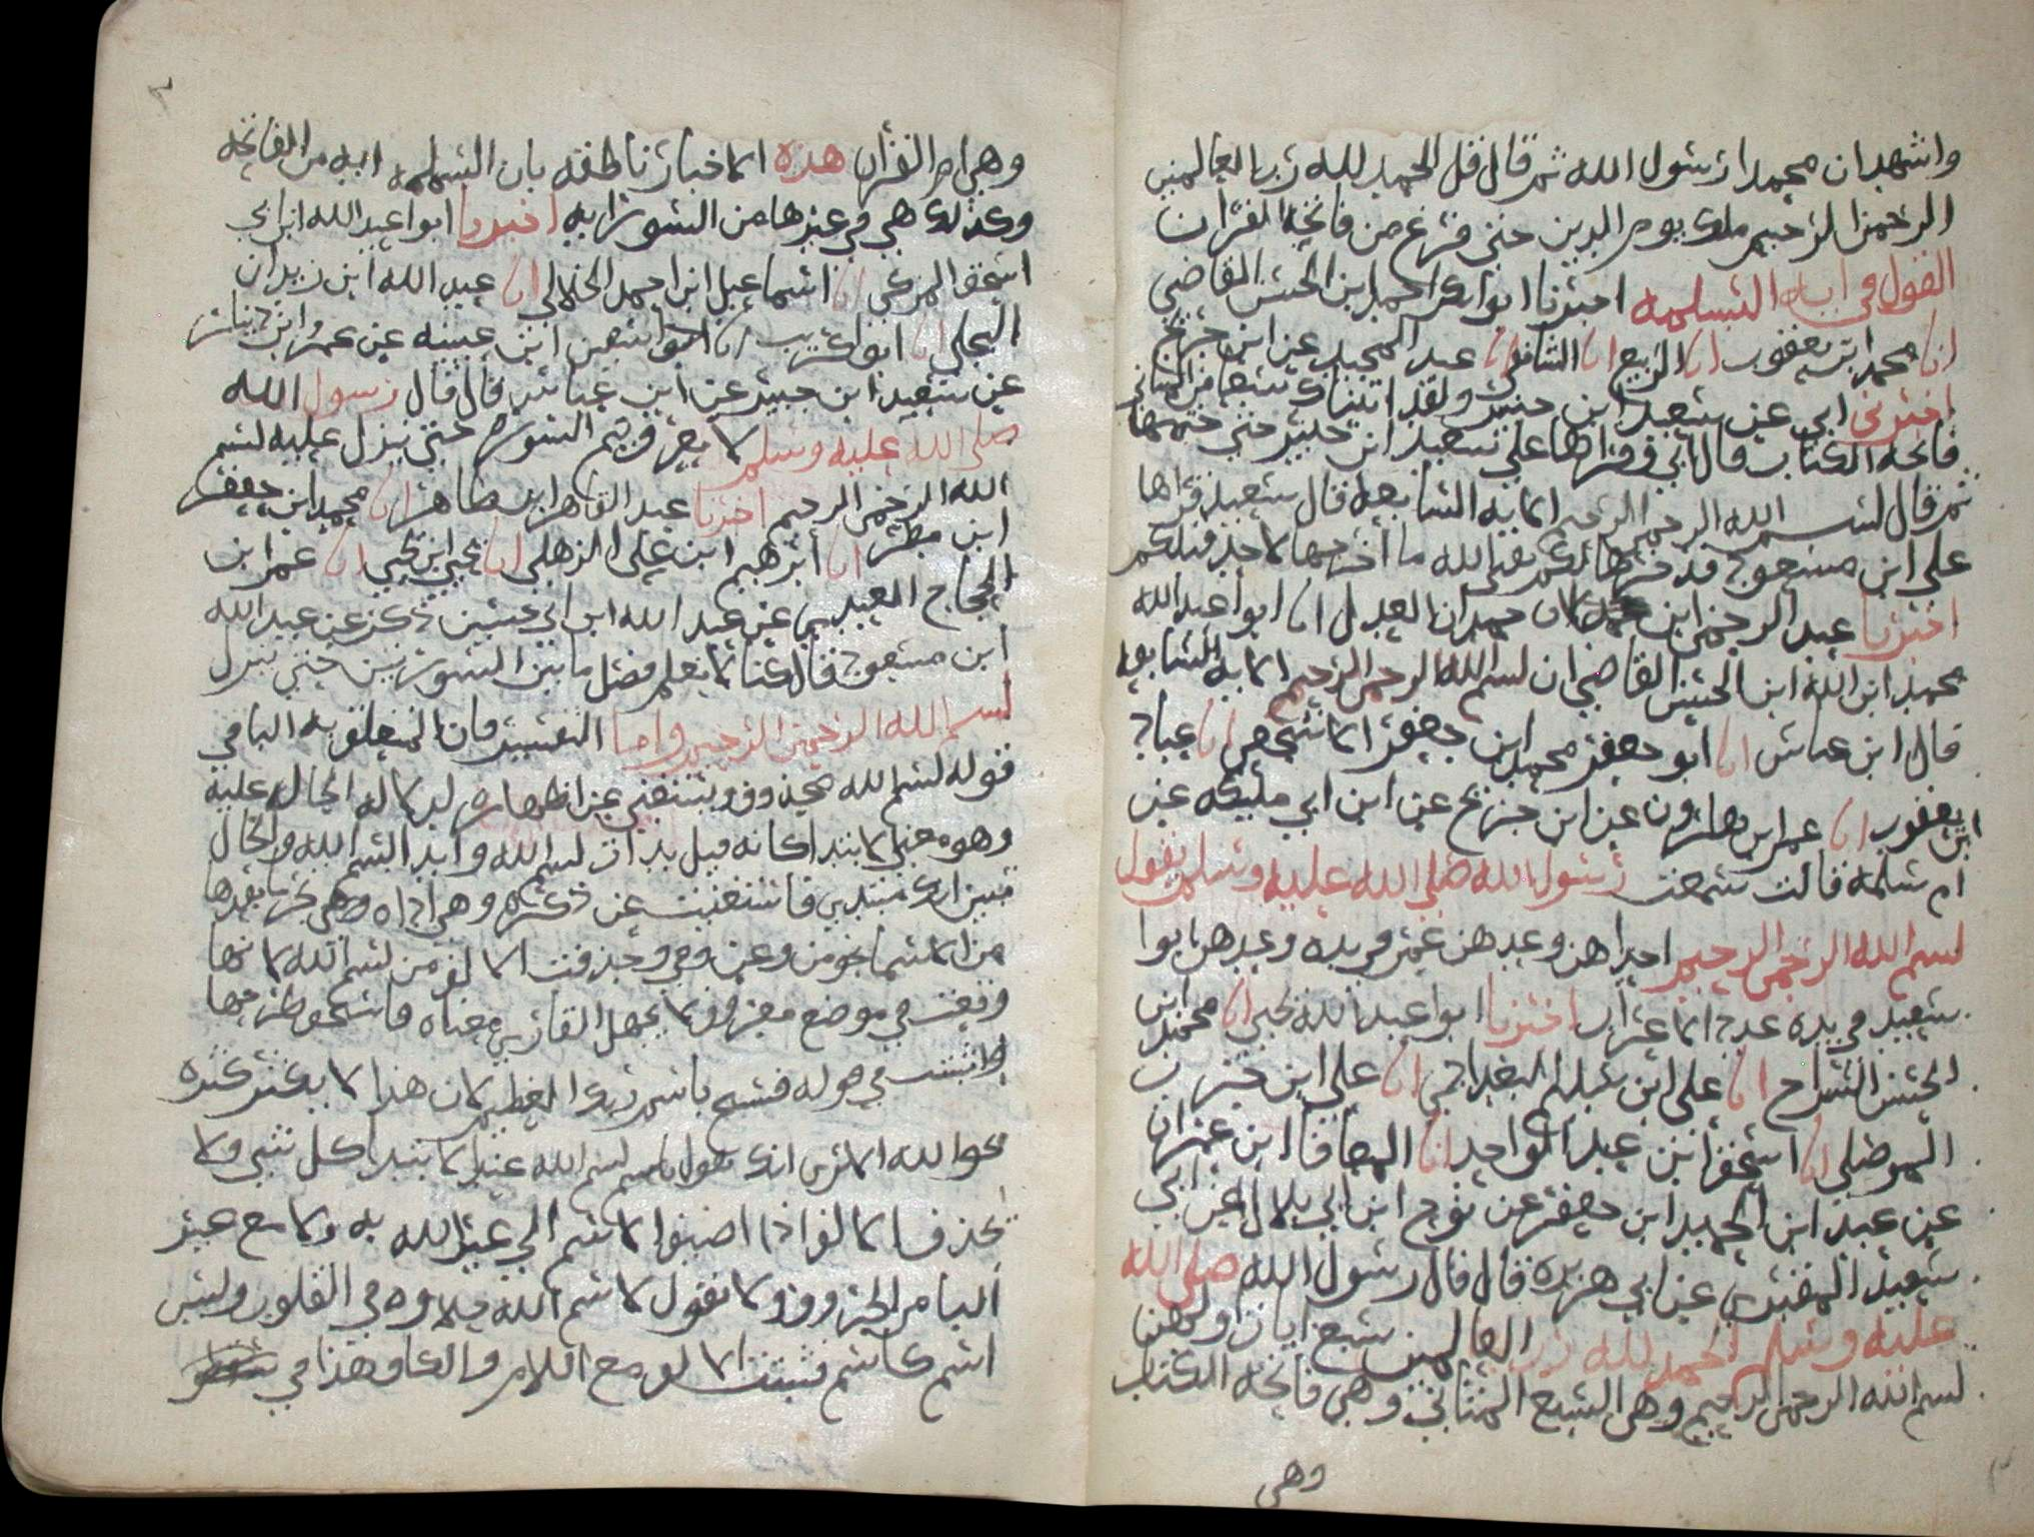 واشهد ان محمدا رسول الله ثم قال قل الحمد لله رب العالمين
الرحمن الرحيم ملك يوم الدين حتى فرغ من فاتحة القران
القول في اية التسلميه اخبرنا ابوا بكر احمد ابن الحسن القاضي
انا محمد ابن يعقوب انا الربيع انا الشافعي انا عبد المجيد عن ابن جريج
اخبرني ابي عن سعيد ابن جبير ولقد اتيناك سبعا من المثاني
فاتحة الكتاب قال ابي وقراها علي سعيد ابن جبير حتى ختمها
ثم قال بسم الله الرحمن الرحيم الاية السابعة قال سعيد قراها
على ابن مسعود قد خرها لكم يعني الله ما اخرجها لاحد قبلكم
اخبرنا عبد الرحمن ابن حمدان العدل انا ابوا عبد الله
محمد ابن الله ابن الحسن القاضي ان بسم الله الرحمن الرحيم الاية السابعة
قال ابن عباس انا ابو جعفر محمد ابن جعفر انا عباد
ابن يعقوب انا عمر ابن هارون عن ابن جريج عن ابن ابي مليكه عن
ام سلمه قالت سمعت رسول الله صلى الله عليه وسلم يقول
بسم الله الرحمن الرحيم احداهن وعدهن عمر في يده وعدهن ابوا
سعيد في يده عدد الاعراب اخبرنا ابوا عبد الله يحيى انا محمد ابن
الحسن السراح انا على ابن سلم البغدادي انا على ابن حرب
الموصلي انا اسحق ابن عبد الواحد انا المعافا ابن عمران
عن عبد ابن الحميد ابن جعفر عن نوح ابن ابي بلال عن ابي
سعيد المقبري عن ابي هريره قال قال رسول الله صلى الله
عليه وسلم الحمد لله رب العالمين سبع ايات اولهن
بسم الله الرحمن الرحيم وهي السبع المثاني وهي فاتحة الكتاب
وهي
وهي ام القران هذه الاخبار ناطقه بان التسلميه ايه من الفاتحه
وكذلك هي في غيرها من السور ايه اخبرنا ابوا عبد الله ابن ابي
اسحق المزكي انا اسماعيل ابن احمد الخلالي انا عبد الله ابن زيدان
البجلي انا ابوا كريب انا سفين ابن عيينه عن عمرو ابن دينار
عن سعيد ابن جبير عن ابن عباس قال قال رسول الله
صلى الله عليه وسلم لا يعرف ختم السوره حتى ينزل عليه بسم
الله الرحمن الرحيم اخبرنا عبد القاهر ابن طاهر انا محمد ابن جعفر
ابن مطر انا ابرهيم ابن على الزهلي انا يحيى ابن يحيى انا عمر ابن
الحجاج العبدي عن عبد الله ابن ابي حسين ذكر عن عبد الله
ابن مسعود قال كنا لا نعلم فضل ما بين السورتين حتى ينزل
بسم الله الرحمن الرحيم واما التفسير فان المتعلق به البا في
قوله بسم الله محذوف ويستغنى عن اظهاره لدلاله الحال عليه
وهو معنى الابتدا كانه قيل بدات بسم الله وابدا بسم الله والحال
تبين انك مبتدي فاستغنيت عن ذكره وهي اداه وهي تجر ما بعدها
من الاسما نحو من وعن وفي وحذفت الالف من بسم الله لانها
وقعت في موضع معروف لا يجهل القاري معناه فاستحق طرحها
واثبتت في قوله فسبح باسم ربك العظيم لان هذا لا يكثر كثره
نحوا لله الا ترى انك تقول بسم الله عند ابتدا كل شي ولا
تحذف الالف اذا اضيف الاسم الى غير الله به ولا مع غير
البا من الحروف ولا تقول لاسم الله حلاوه في القلوب وليس
اسم كاسم فتثبت الالف مع اللام والكاف هذا في